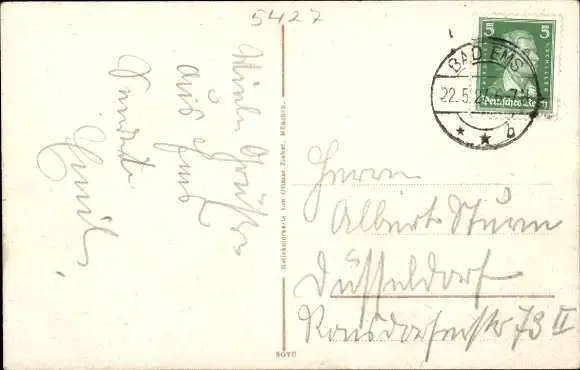 5427
Viele Grüße
aus Ems
sendet
Emil.
Heliokolorkarte von Ottmar Zieher, München.
SGTU
5 5
Deutsches Reich
BAD EMS
22.5.27.6-7
* * b
Herrn
Albert Sturm
Düsseldorf
Ronsdorferstr 73 II